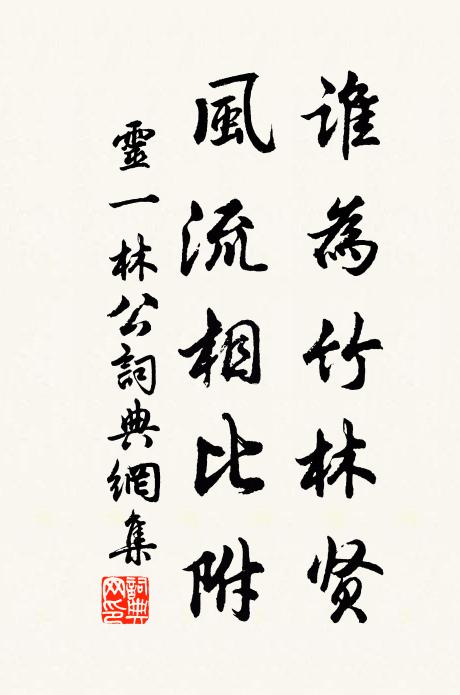 誰為竹林贤
風流相比附
靈一林公詞典網集
詞典网印